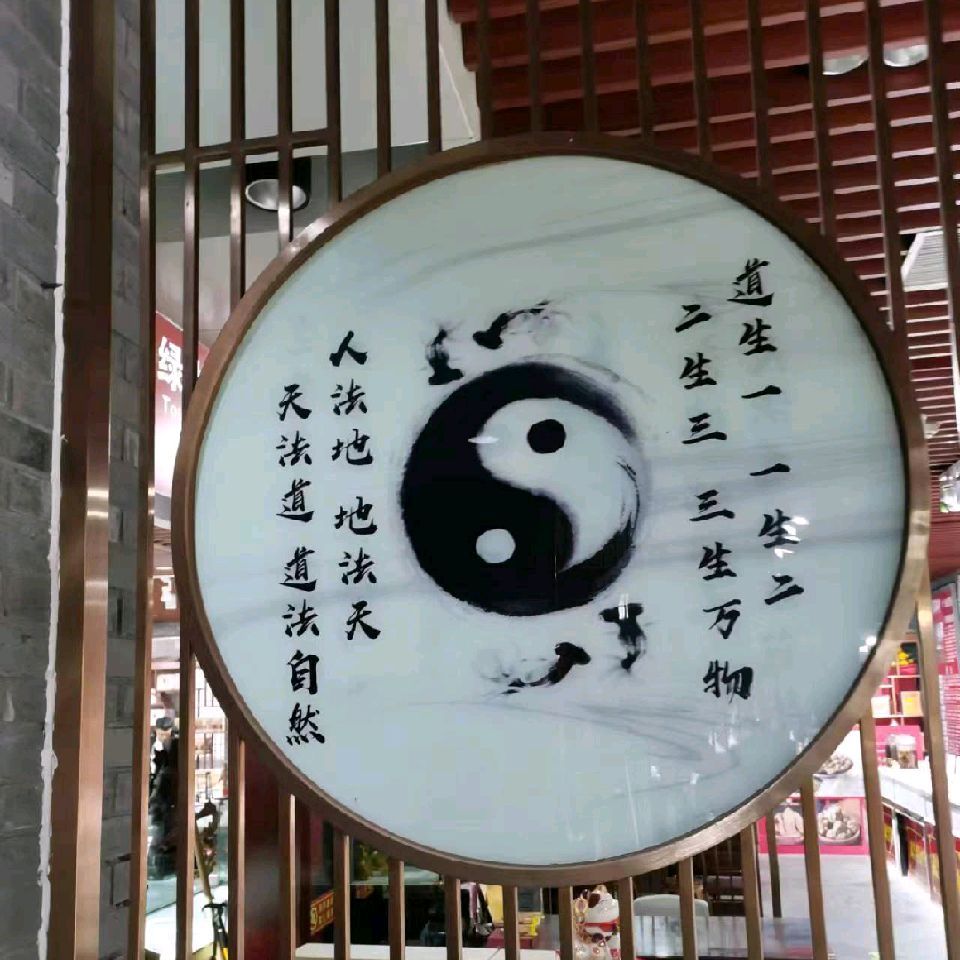 道生一 一生二
二生三 三生万物
人法地 地法天
天法道 道法自然